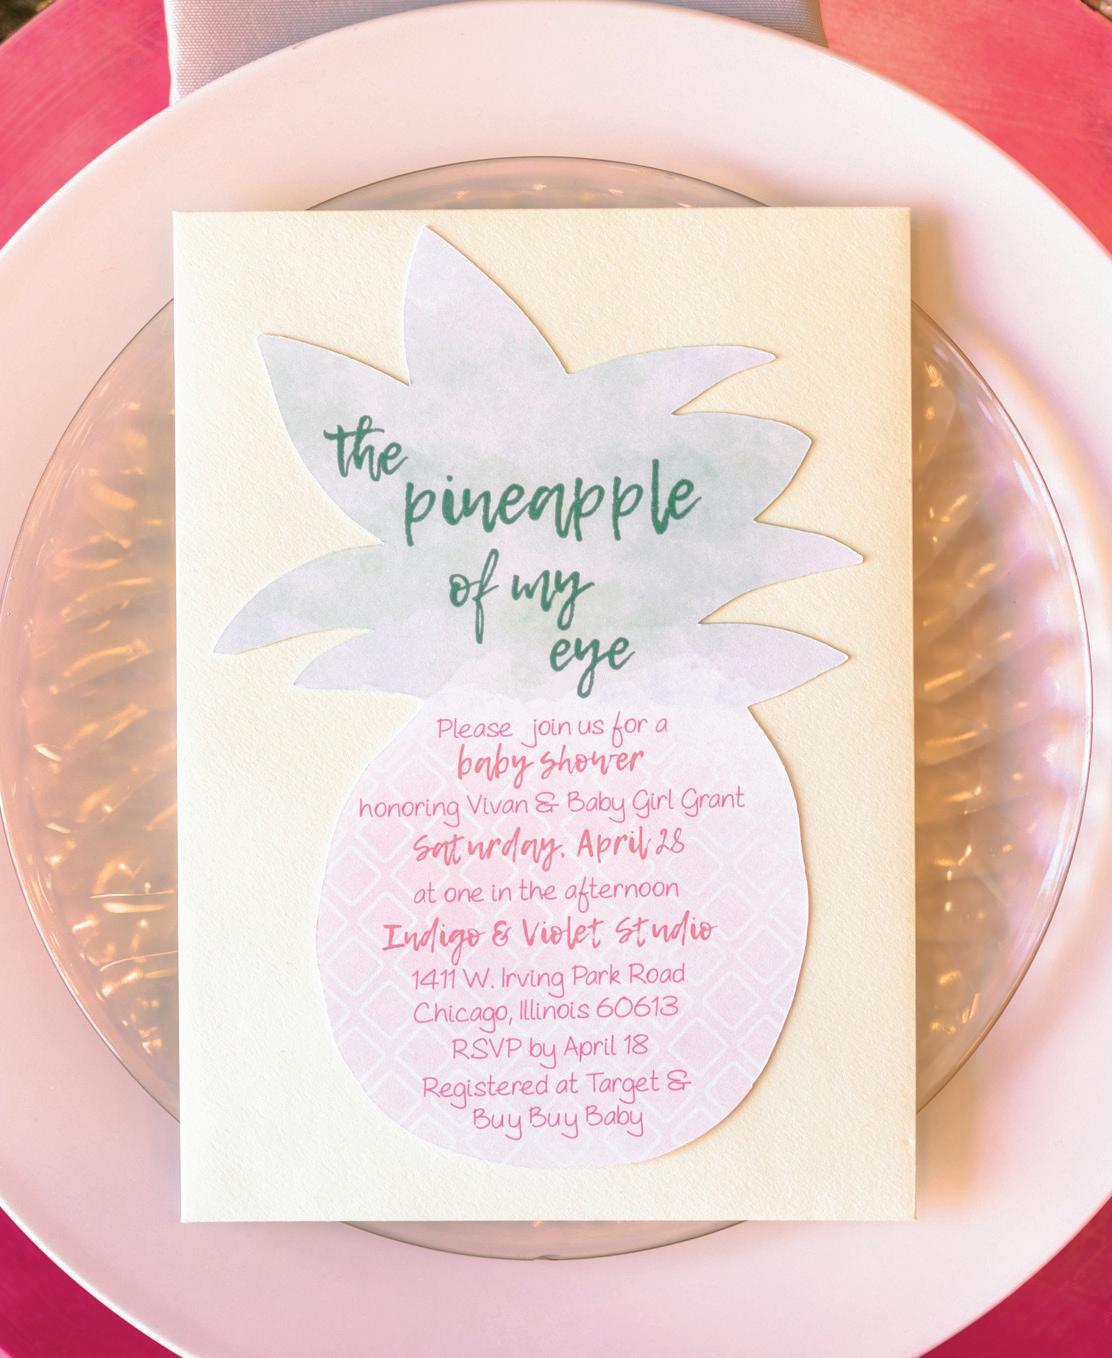 the
pineapple
of my
eye
Please join us for a
baby shower
honoring Vivan & Baby Girl Grant
Saturday, April 28
at one in the afternoon
Indigo & Violet Studio
1411 W. Irving Park Road
Chicago, Illinois 60613
RSVP by April 18
Registered at Target &
Buy Buy Baby